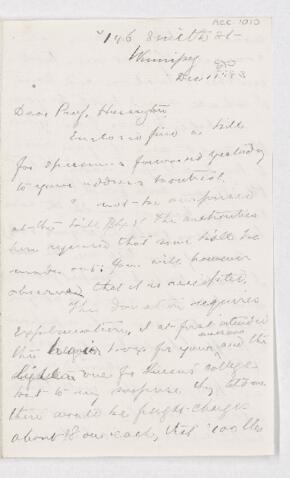 Acc. 1013
196 Smith St
Winnipeg
Dec
Dear Prof. Harrington
Enclosed find a bill
for specimens forwarded yesterday
to your address Montreal.
not be surprised
at the bill. The authorities
here required that some bill be
made out: You will however
observe that it is receipted.
The donation requires
explanation, I at first intended
this box for your museum and the
one for Queens college
but to my surprise they told me
there would be freight charges
about $8 on each, that 100 lbs